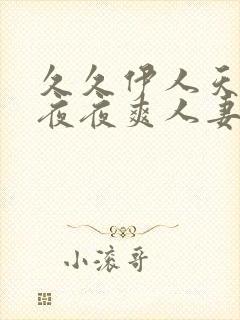 久久伊人天
夜夜爽人妻
小滚哥